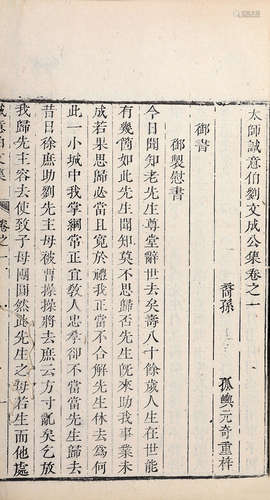 太師誠意伯劉文成公集卷之一
裔孫 孤嶼元奇重梓
御書
御製慰書
今日聞知老先生尊堂辭世去矣壽八十餘歲人生在世能
有幾箇如此先生聞知莫不思歸否先生旣來助我事業未
成若果思歸必當且寬於禮我正當不合解先生休去為何
此一小城中我掌綱常正宜教人忠孝卻不當當先生歸去
昔日徐庶助劉先主母被曹操操將去庶云方寸亂矣乞放
我歸先主容去使致公子母團圓然此先生之母若生而他處
誠意伯文集 卷之一 一